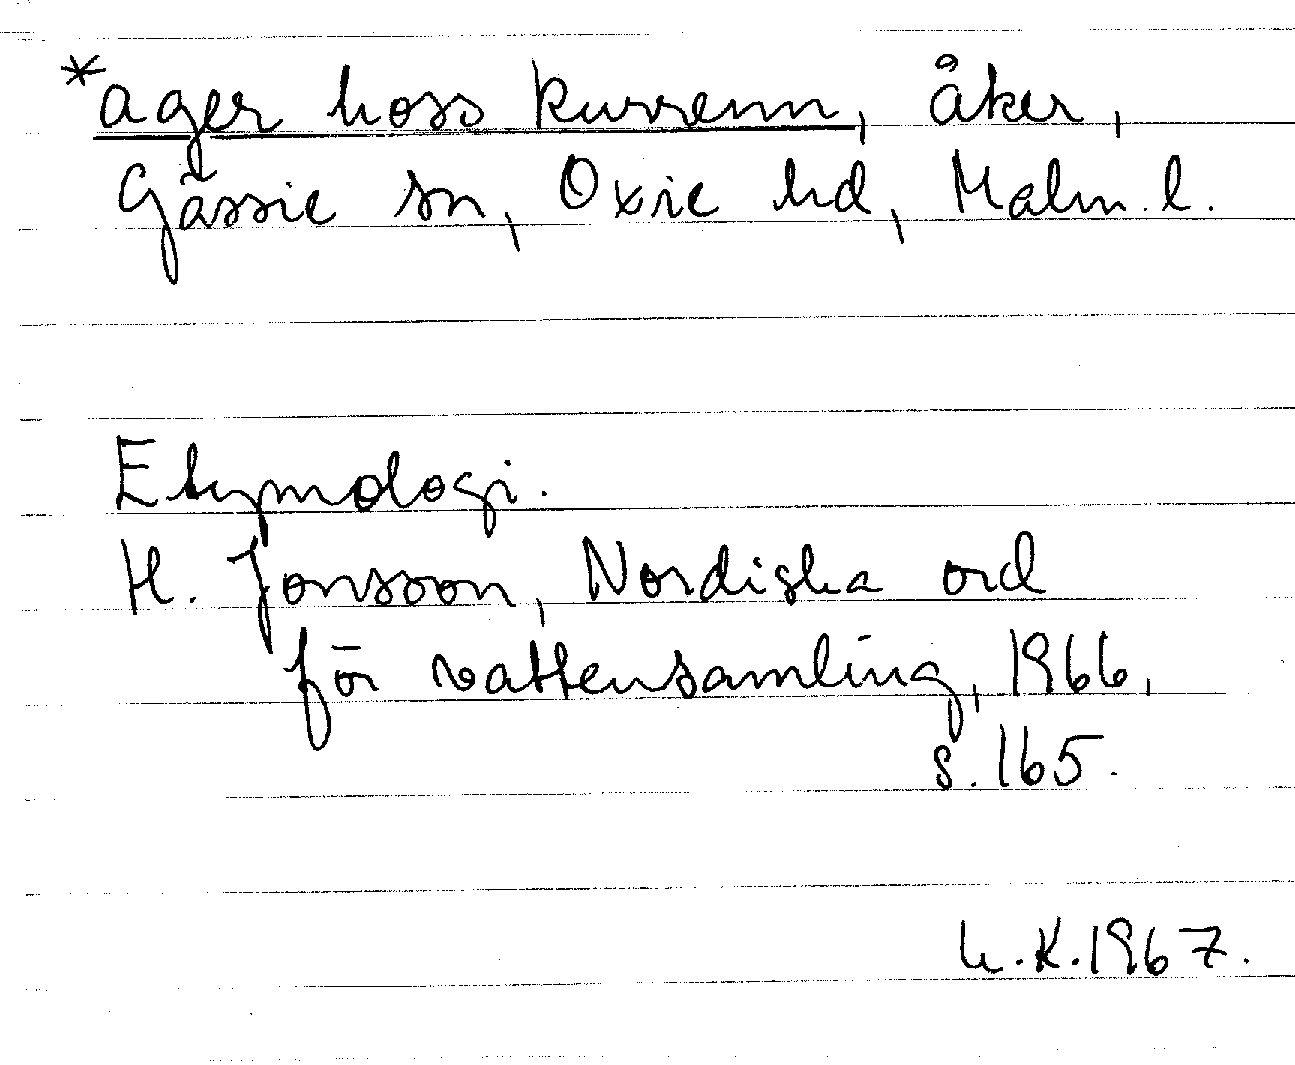 *ager hoss kurrenn, åker,
Gässie sn, Oxie hd, Malm. l.
Etymologi.
H. Jonsson, Nordiska ord
för vattensamling, 1966,
s. 165.
K. 1967.